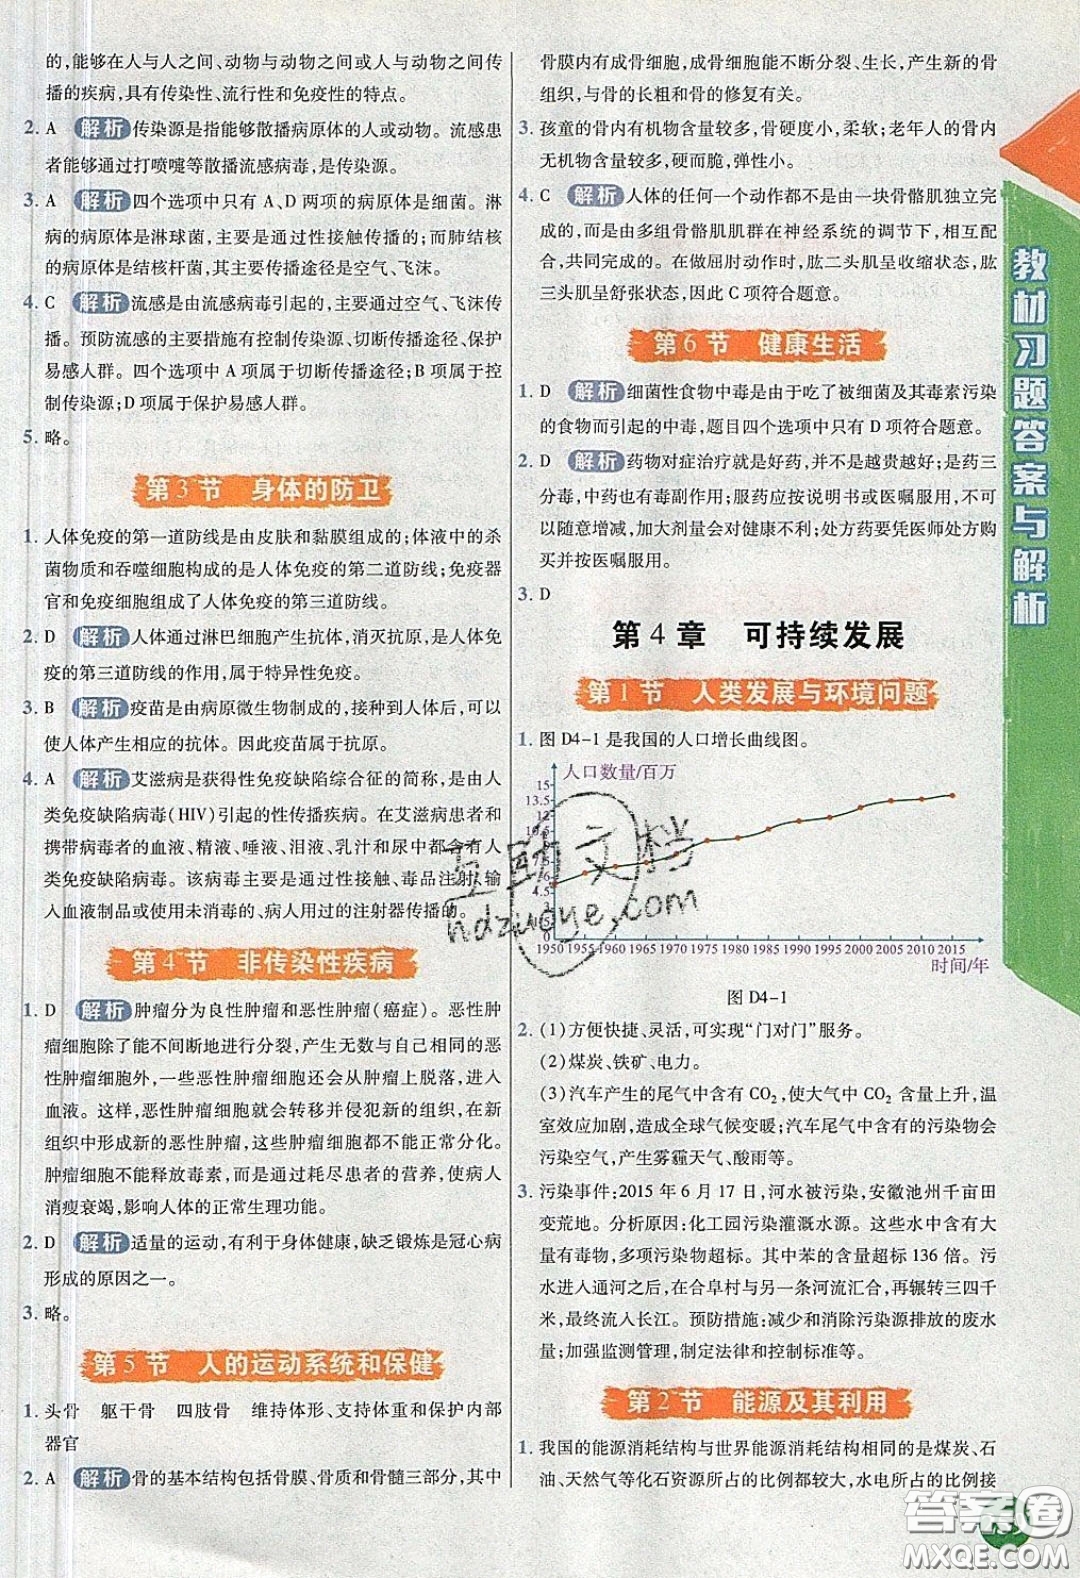 的,能够在人与人之间、动物与动物之间或人与动物之间传
播的疾病,具有传染性、流行性和免疫性的特点。
2. A 解析 传染源是指能够散播病原体的人或动物。流感患
者能够通过打喷嚏等散播流感病毒,是传染源。
3. A 解析 四个选项中只有 A、D 两项的病原体是细菌。淋
病的病原体是淋球菌,主要是通过性接触传播的;而肺结核
的病原体是结核杆菌,其主要传播途径是空气、飞沫。
4. C 解析 流感是由流感病毒引起的,主要通过空气、飞沫传
播。预防流感的主要措施有控制传染源、切断传播途径、保护
易感人群。四个选项中 A 项属于切断传播途径;B 项属于控
制传染源;D 项属于保护易感人群。
5. 略。
第 3 节 身体的防卫
1. 人体免疫的第一道防线是由皮肤和黏膜组成的;体液中的杀
菌物质和吞噬细胞构成的是人体免疫的第二道防线;免疫器
官和免疫细胞组成了人体免疫的第三道防线。
2. D 解析 人体通过淋巴细胞产生抗体,消灭抗原,是人体免
疫的第三道防线的作用,属于特异性免疫。
3. B 解析 疫苗是由病原微生物制成的,接种到人体后,可以
使人体产生相应的抗体。因此疫苗属于抗原。
4. A 解析 艾滋病是获得性免疫缺陷综合征的简称,是由人
类免疫缺陷病毒(HIV)引起的性传播疾病。在艾滋病患者和
携带病毒者的血液、精液、唾液、泪液、乳汁和尿中都含有人
类免疫缺陷病毒。该病毒主要通过性接触、毒品注射、输
入血液制品或使用未消毒的、病人用过的注射器传播的。
第 4 节 非传染性疾病
1. D 解析 肿瘤分为良性肿瘤和恶性肿瘤(癌症)。恶性肿
瘤细胞除了能不间断地进行分裂,产生无数与自己相同的恶
性肿瘤细胞外,一些恶性肿瘤细胞还会从肿瘤上脱落,进入
血液。这样,恶性肿瘤就会转移并侵犯新的组织,在新
组织中形成新的恶性肿瘤,这些肿瘤细胞都不能正常分化。
肿瘤细胞不能释放毒素,而是通过耗尽患者的营养,使病人
消瘦衰竭,影响人体的正常生理功能。
2. D 解析 适量的运动,有利于身体健康,缺乏锻炼是冠心病
形成的原因之一。
3. 略。
第 5 节 人的运动系统和保健
1. 头骨 躯干骨 四肢骨 维持体形、支持体重和保护内部
器官
2. A 解析 骨的基本结构包括骨膜、骨质和骨髓三部分,其中
骨膜内有成骨细胞,成骨细胞能不断分裂、生长,产生新的骨
组织,与骨的长粗和骨的修复有关。
3. 孩童的骨内有机物含量较多,骨硬度小,柔软;老年人的骨内
无机物含量较多,硬而脆,弹性小。
4. C 解析 人体的任何一个动作都不是由一块骨骼肌独立完
成的,而是由多组骨骼肌肌群在神经系统的调节下,相互配
合,共同完成的。在做屈肘动作时,肱二头肌呈收缩状态,肱
三头肌呈舒张状态,因此 C 项符合题意。
第 6 节 健康生活
1. D 解析 细菌性食物中毒是由于吃了被细菌及其毒素污染
的食物而引起的中毒,题目四个选项中只有 D 项符合题意。
2. D 解析 药物对症治疗就是好药,并不是越贵越好;是药三
分毒,中药也有毒副作用;服药应按说明书或医嘱服用,不可
以随意增加,加大剂量会对健康不利;处方药要凭医师处方购
买并按医嘱服用。
3. D
第 4 章 可持续发展
第 1 节 人类发展与环境问题
1. 图 D4-1 是我国的人口增长曲线图。
人口数量/百万
15
13.5
12
4.5
0
1950 1955 1960 1965 1970 1975 1980 1985 1990 1995 2000 2005 2010 2015
时间/年
图 D4-1
2. (1)方便快捷、灵活,可实现“门对门”服务。
(2)煤炭、铁矿、电力。
(3)汽车产生的尾气中含有 CO₂,使大气中 CO₂ 含量上升,温
室效应加剧,造成全球气候变暖;汽车尾气中含有的污染物会
污染空气,产生雾霾天气、酸雨等。
3. 污染事件:2015 年 6 月 17 日,河水被污染,安徽池州千亩田
变荒地。分析原因:化工园污染灌溉水源。这些水中含有大
量有毒物,多项污染物超标。其中苯的含量超标 136 倍。污
水进入通河之后,在合阜村与另一条河流汇合,再辗转三四千
米,最终流入长江。预防措施:减少和消除污染源排放的废水
量;加强监测管理,制定法律和控制标准等。
第 2 节 能源及其利用
1. 我国的能源消耗结构与世界能源消耗结构相同的是煤炭、石
油、天然气等化石资源所占的比例都较大,水电所占的比例接
教材习题答案与解析
互助文档
hdzuoye.com
答案圈
MXQE.COM